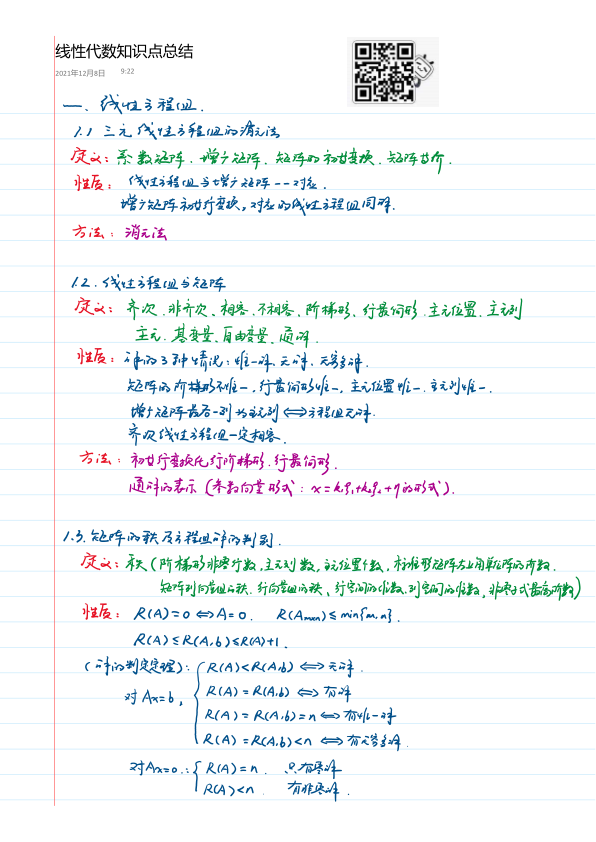 线性代数知识点总结
2021年12月8日 9:22
一、线性方程组.
1.1 三元线性方程组的消元法
定义: 系数矩阵. 增广矩阵. 矩阵的初等变换. 矩阵等价.
性质: 线性方程组与增广矩阵一一对应.
增广矩阵初等行变换, 对应的线性方程组同解.
方法: 消元法
1.2. 线性方程组与矩阵
定义: 齐次. 非齐次、相容. 不相容、阶梯形、行最简形. 主元位置. 主元列
主元. 基变量、自由变量、通解.
性质: 解的3种情况: 唯一解、无解、无穷多解.
矩阵的阶梯形不唯一, 行最简形唯一, 主元位置唯一. 主元列唯一.
增广矩阵最后一列为主元列⟺方程组无解.
齐次线性方程组一定相容.
方法: 初等行变换化行阶梯形. 行最简形.
通解的表示 (参数向量形式: x=k₁ξ₁+k₂ξ₂+η的形式).
1.3. 矩阵的秩及方程组解的判别.
定义: 秩(阶梯形非零行数, 主元列数, 主元位置个数, 标准形矩阵左上角单位阵的阶数.
矩阵列向量组的秩. 行向量组的秩、行空间的维数. 列空间的维数, 非零子式最高阶数)
性质: R(A)=0 ⟺ A=0. R(Aₘₓₙ)≤min{m,n}.
R(A)≤R(A,b)≤R(A)+1.
(解的判定定理):
R(A)<R(A,b) ⟺ 无解.
对Ax=b, R(A)=R(A,b) ⟺ 有解
R(A)=R(A,b)=n ⟺ 有唯一解
R(A)=R(A,b)<n ⟺ 有无穷多解.
对Ax=0: R(A)=n. 只有零解
R(A)<n. 有非零解.